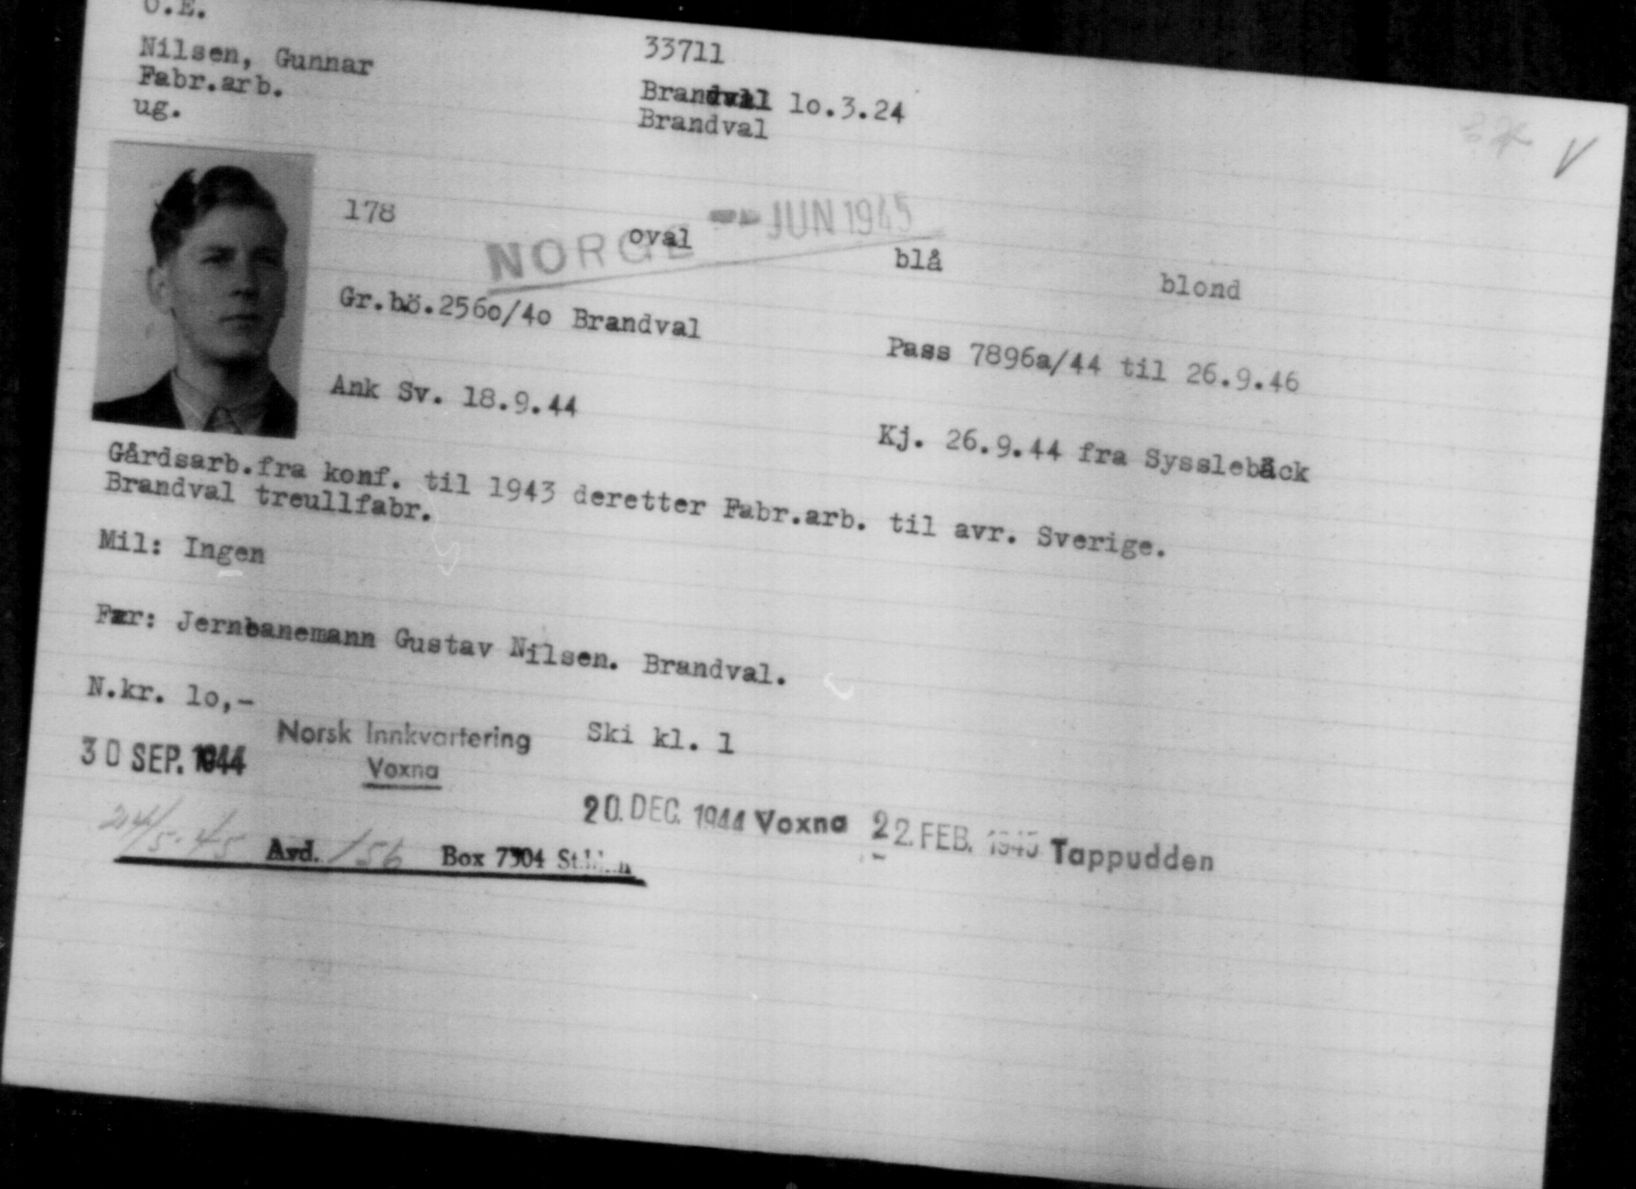 O.E.
33711
Nilsen, Gunnar
Fabr.arb.
ug.
Brandval lo.3.24
Brandval
178
oval
NORGE
JUN 1945
blå
blond
Gr.bö.256o/4o Brandval
Pass 7896a/44 til 26.9.46
Ank Sv. 18.9.44
Kj. 26.9.44 fra Sysslebäck
Gårdsarb.fra konf. til 1943 deretter Fabr.arb. til avr. Sverige.
Brandval treullfabr.
Mil: Ingen
Far: Jernbanemann Gustav Nilsen. Brandval.
N.kr. lo,-
Norsk Innkvartering
Voxna
Ski kl. 1
30 SEP. 1944
20. DEC. 1944 Voxna
22. FEB. 1945 Tappudden
24/5-45 Avd. 156 Box 7304